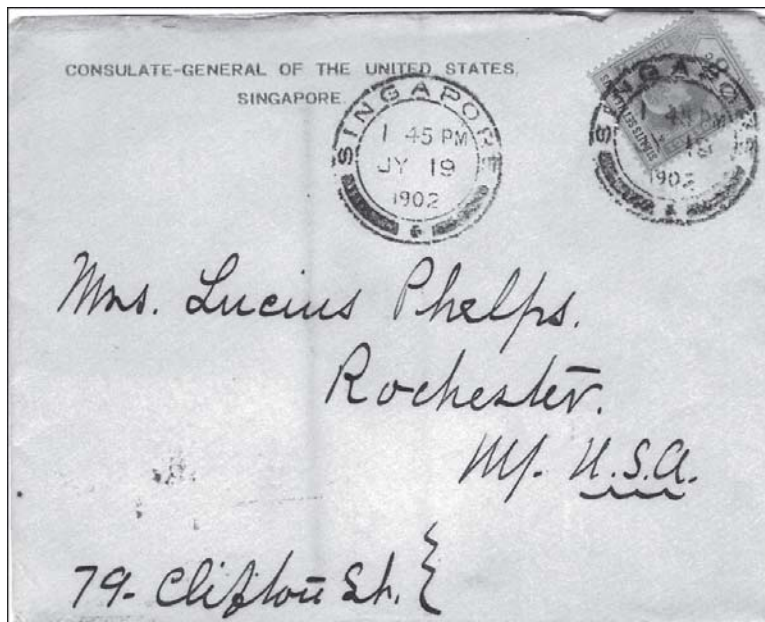 CONSULATE-GENERAL OF THE UNITED STATES,
SINGAPORE.
SINGAPORE
1 45 PM
JY 19
1902
SINGAPORE
1 45 PM
1902
STRAITS SETTLEMENTS
Mrs. Lucius Phelps.
Rochester.
NY. U.S.A.
79- Clifton St.